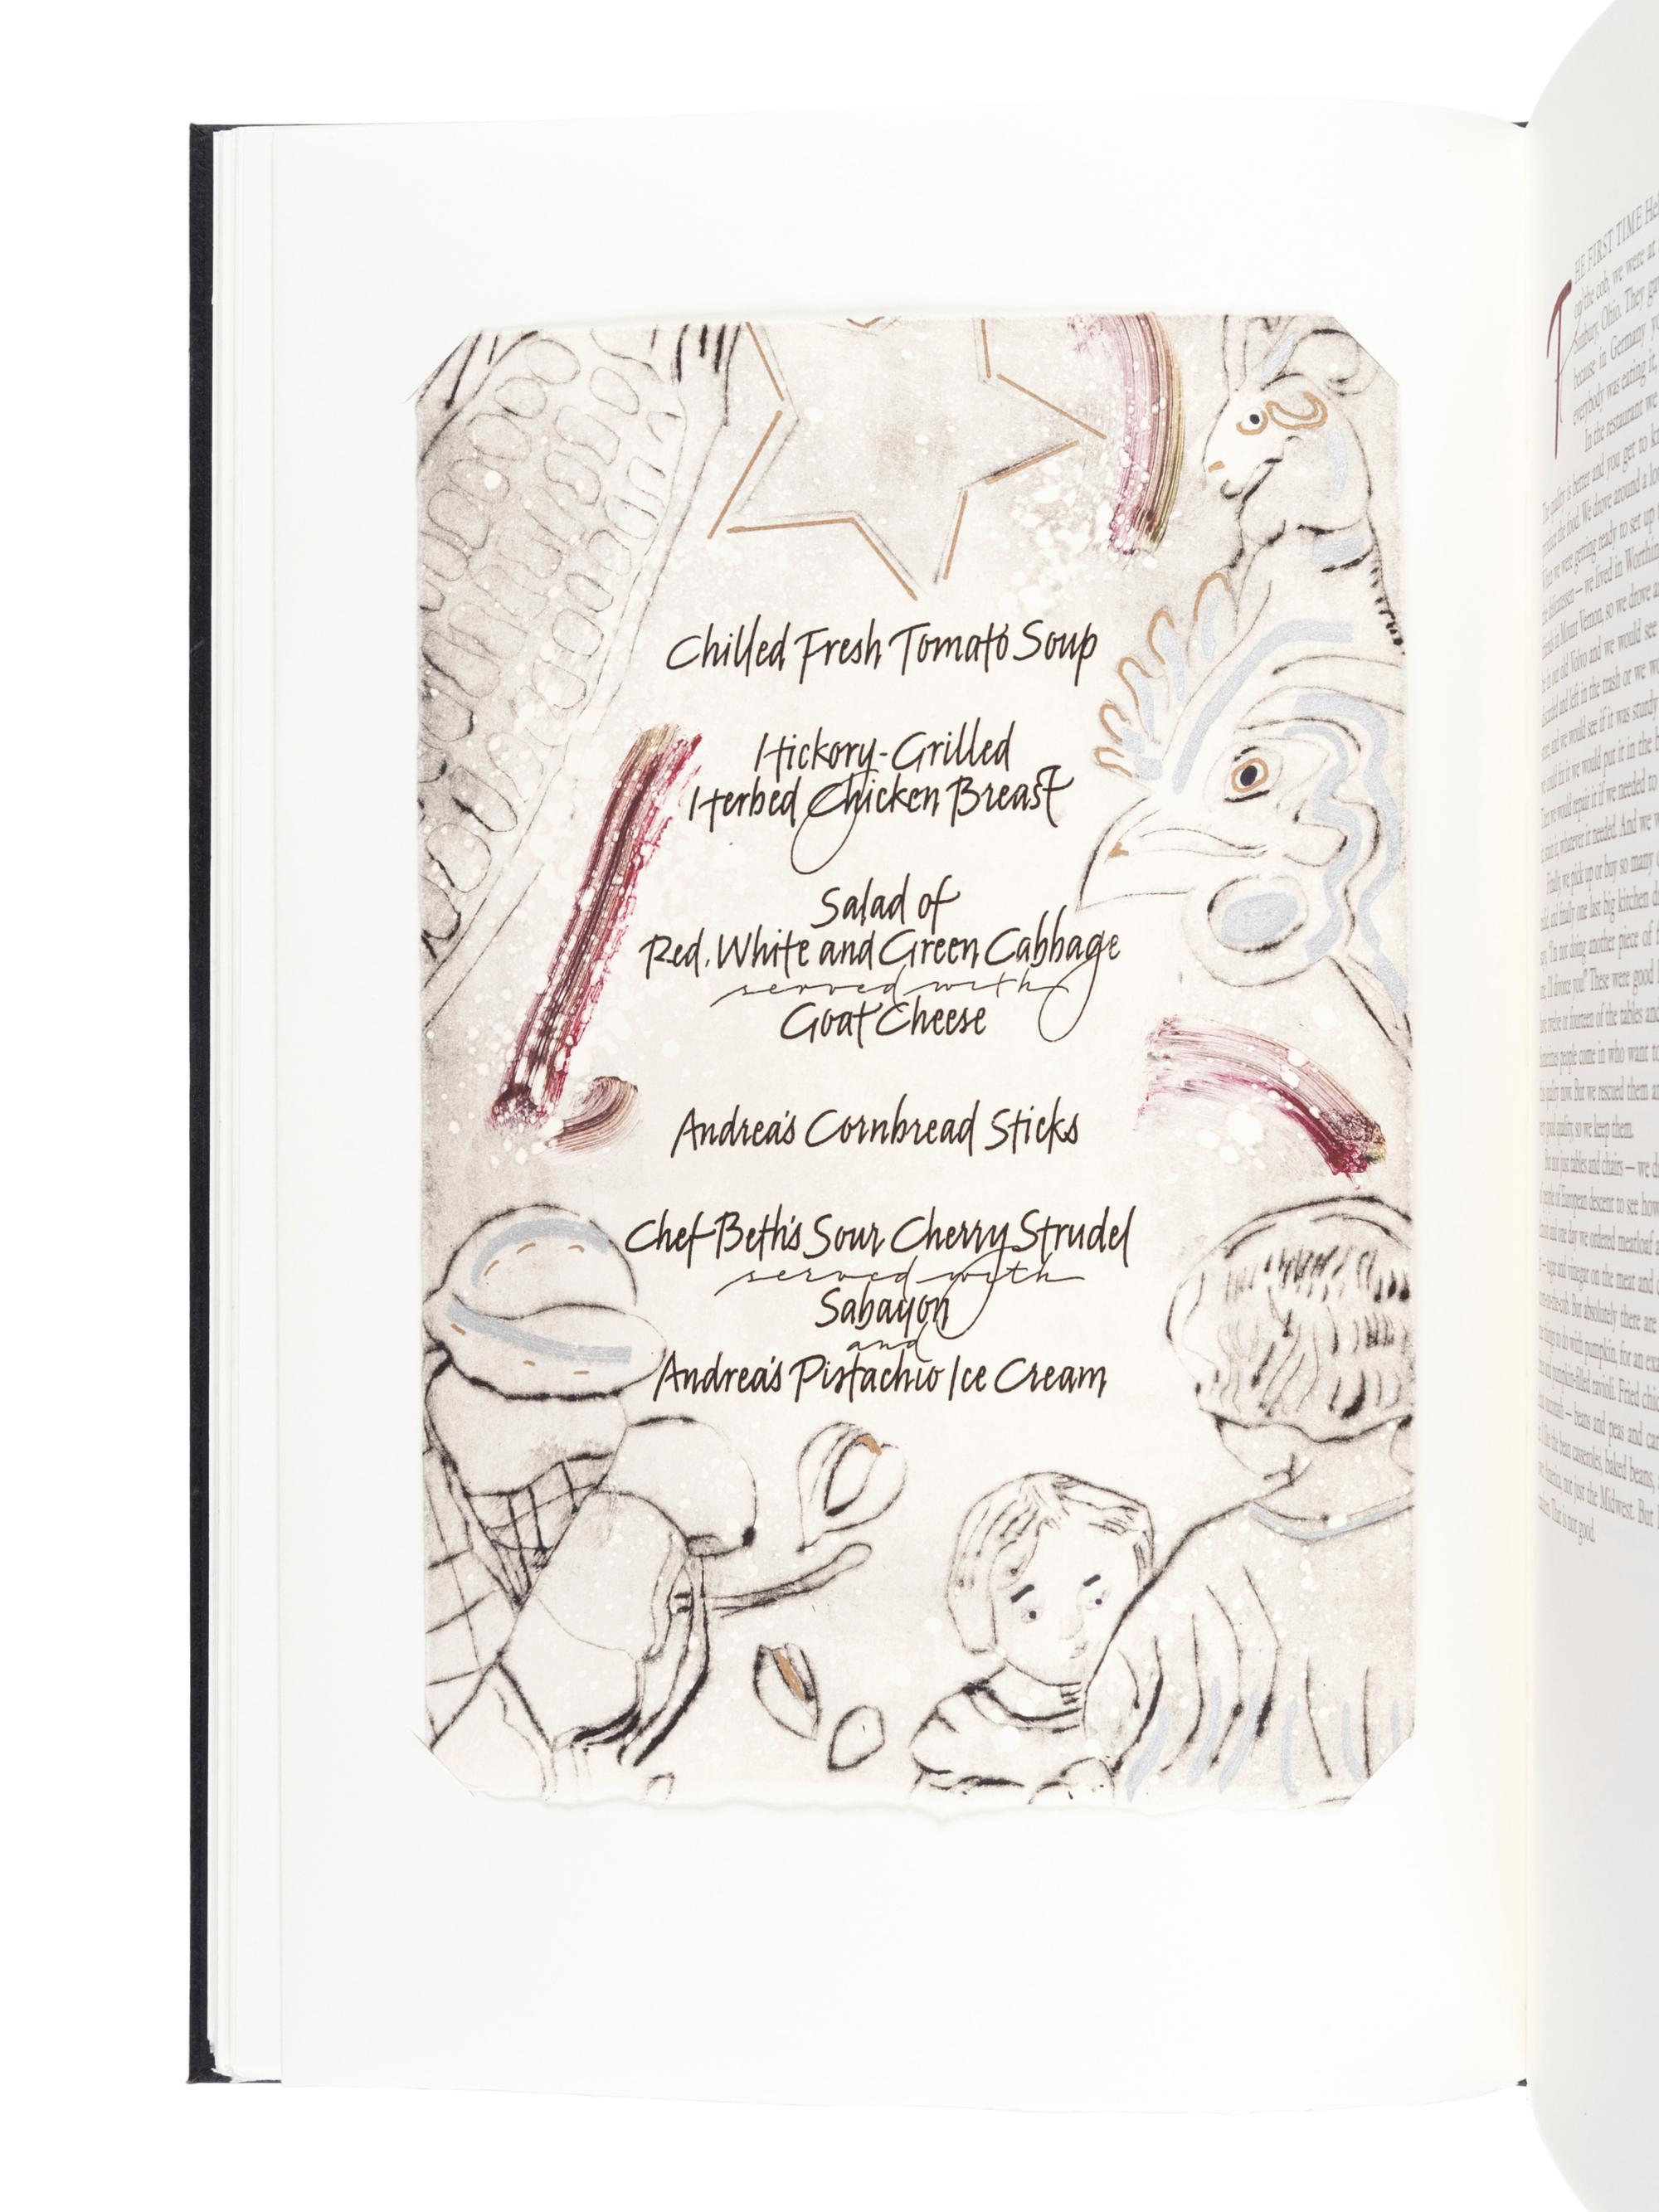 Chilled Fresh Tomato Soup
Hickory-Grilled
Herbed Chicken Breast
Salad of
Red, White and Green Cabbage
served with
Goat Cheese
Andrea's Cornbread Sticks
Chef Beth's Sour Cherry Strudel
served with
Sabayon
and
Andrea's Pistachio Ice Cream
THE FIRST TIME
the cob, we were at
Ohio. They
because in Germany
everybody was eating it,
In the restaurant we
quality is better and you get to
the food. We drove around a
we were getting ready to set up
delicatessen — we lived in
Mount Vernon, so we drove
our old Volvo and we would see
and left in the trash or we
and we would see if it was sturdy
could fix it we would put it in the
we would repair it if we needed to
it, whatever it needed. And we
Finally, we pick up or buy so many
and finally one last big kitchen
not doing another piece of
I'll divorce you!" These were good
twelve or fourteen of the tables and
people come in who want to
quality now. But we rescued them
good quality, so we keep them.
not just tables and chairs — we
people of European descent to see how
and one day we ordered meatloaf
sugar and vinegar on the meat and
But absolutely there are
things to do with pumpkin, for an
and pumpkin-filled ravioli. Fried
beans and peas and
the bean casseroles, baked beans,
America, not just the Midwest. But
That is not good.